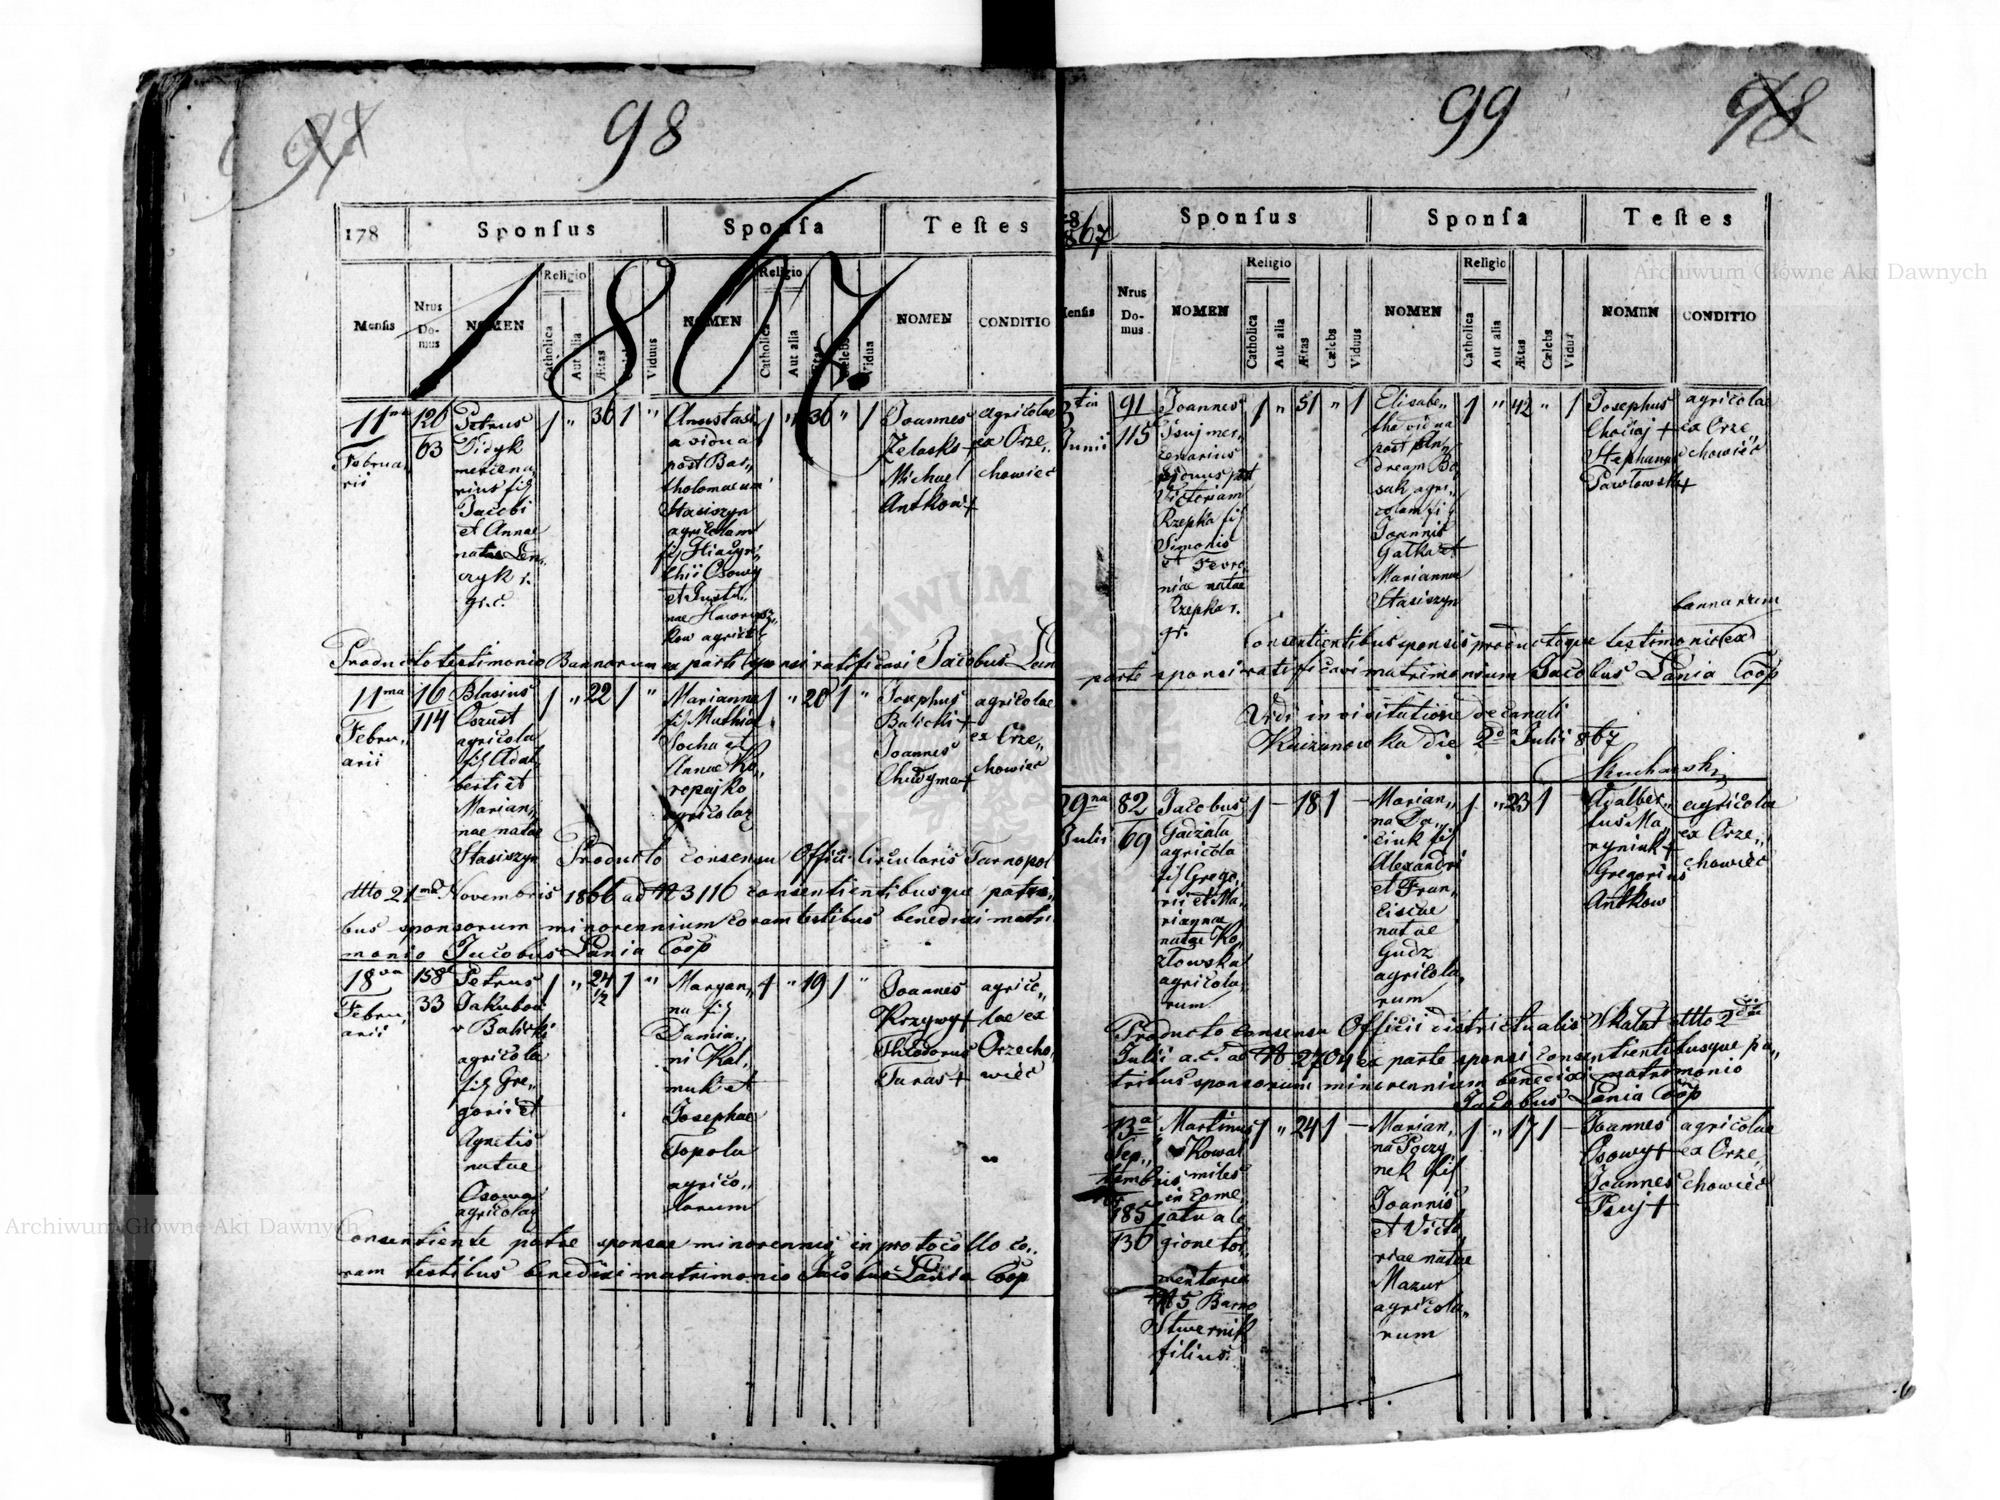 98
178
Sponsus
Sponsa
Testes
1867.
Mensis
Nrus Domus
NOMEN
Religio
Catholica
Aut alia
Ætas
Viduus
NOMEN
Religio
Catholica
Aut alia
Ætas
Cælebs
Vidua
NOMEN
CONDITIO
11ma
Februa
rii
120
63
Petrus
Didyk
mercena,
rius fil
Jacobi
et Annae
natae Len,
czyk
1 " 36 1 "
Anastasi
a vidua
post Bar,,
tholomaeum
Stasiszyn
agricolam
fil Hiacyn,
thii Osowy
et Justi,,
nae
1 " 36 " 1
Joannes
Zelasko +
Michael
Antkow +
agricolae
ex Orze,
chowiec
Producto testimonio Bannorum ex parte sponsi ratificavi Jacobus
11ma
Febru,,
arii
16
114
Blasius
Oszust
agricola
fil Adal,
berti et
Marian,
nae natae
Stasiszyn
1 " 22 1 "
Marianna
fil Mathiae
Socha et
Annae Ko,,
ropajko
agricolar
1 " 20 1 "
Josephus
Balicki +
Joannes
agricolae
ex Orze,,
chowiec
Producto consensu Officii Circularis Tarnopol
ddto 21ma Novembris 1866 ad N 3116 consentientibusque patri,
bus sponsorum minorennium coram testibus benedixi matri
monio Jacobus Lania Coop
18va
Febru,
arii
158
33
Petrus
Jakubow
v Balicki
agricola
fil Gre,,
gorii et
Agnetis
natae
Osowa
agricolar
1 " 24½ 1 "
Maryan,,
na fil
Damia,
ni Kal,
muk et
Josephae
Topola
agrico,,
larum
1 " 19 1 "
Joannes
Krzywy +
Theodorus
Taras +
agric,,
lae ex
Orzecho,
wiec
Consentiente patre sponsae minorennis in protocollo co,,
ram testibus benedixi matrimonio Jacobus Lania Coop
99
98
867
Sponsus
Sponsa
Testes
Nrus Domus
NOMEN
Religio
Catholica
Aut alia
Ætas
Cælebs
Viduus
NOMEN
Religio
Catholica
Aut alia
Ætas
Cælebs
NOMEN
CONDITIO
Junii
91
115
Joannes
Psuj mer,
cenarius
viduus post
Victoriam
Rzepka fil
Simonis
et Fevro,
niae natae
Rzepka
1 " 51 " 1
Elisabe,,
tha vidua
post An,
dream Bo
sak agri,
colam fil
Joannis
Gatka et
Marianna
Stasiszyn
1 " 42 " 1
Josephus
Chociaj +
Stephanus
Pawlowski +
agricolae
ex Orze
chowiec
bannorum
Consentientibus sponsis productoque testimonio ex
parte sponsi ratificavi matrimonium Jacobus Lania Coop
Vidi in visitatione decanali
die 2da Julii 867
29na
Julii
82
69
Jacobus
Gadzala
agricola
fil Grego,
rii et Ma,
riannae
natae Ko,
zlowska
agricola,
rum
1 — 18 1 —
Marian,,
na Da,,
ciuk fil
Alexandri
et Fran,
ciscae
natae
Gudz
agricola,
rum
1 " 23 1
Adalber,,
tus Ma,
ryniuk +
Gregorius
Antkow
agricolae
ex Orze,,
chowiec
Producto consensu Officii districtualis Skalat ddto 2da
Julii a.c. ad N 2704 ex parte sponsi consentientibusque pa,,
tribus sponsorum minorennium benedixi matrimonio
Jacobus Lania Coop
13a
Sep,,
tembris
185
136
Martinus
Kowal
miles
gione tor,
mentaria
N5 Barno
filius
1 " 24 1 —
Marian,,
na Poczy
nek fil
Joannis
et Victo,
riae natae
Mazur
agricola,,
rum
1 " 17 1 —
Joannes
Osowy +
Joannes
Psuj +
agricolae
ex Orze,
chowiec
Archiwum Główne Akt Dawnych
Archiwum Główne Akt Dawnych